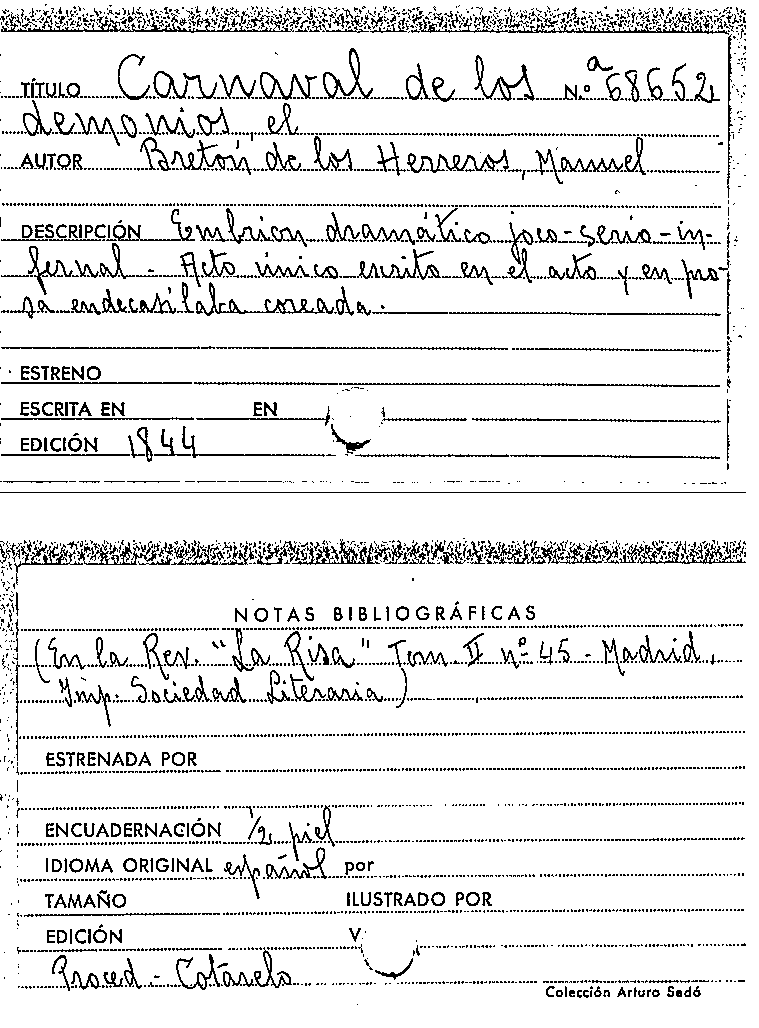 TÍTULO Carnaval de los N.º a 68652
demonios, el
AUTOR Bretón de los Herreros, Manuel
DESCRIPCIÓN Embrion dramático joco-serio-in-
fernal - Acto único escrito en el acto y en pro-
sa endecasílaba coreada.
ESTRENO
ESCRITA EN EN
EDICIÓN 1844
NOTAS BIBLIOGRÁFICAS
(En la Rev. "La Risa" Tom. II nº 45 - Madrid,
Imp. Sociedad Literaria)
ESTRENADA POR
ENCUADERNACIÓN 1/2 piel
IDIOMA ORIGINAL español por
TAMAÑO ILUSTRADO POR
EDICIÓN V
Proced - Cotarelo
Colección Arturo Sedó